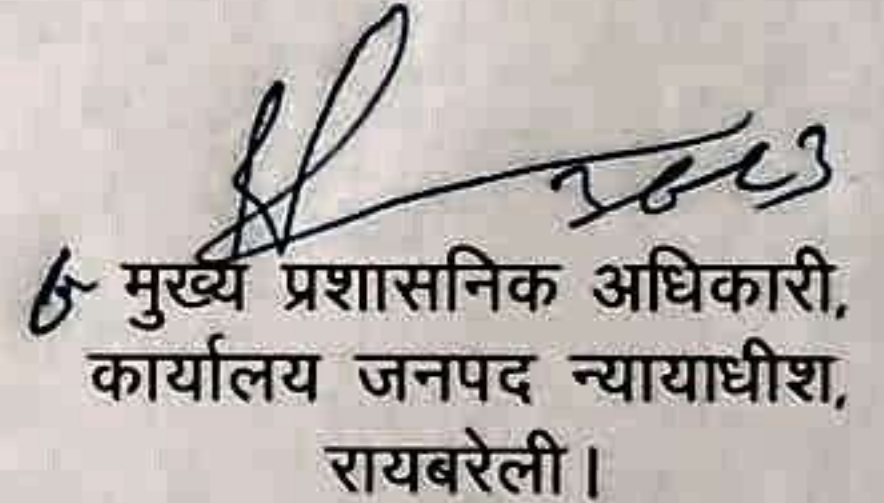 मुख्य प्रशासनिक अधिकारी,
कार्यालय जनपद न्यायाधीश,
रायबरेली।